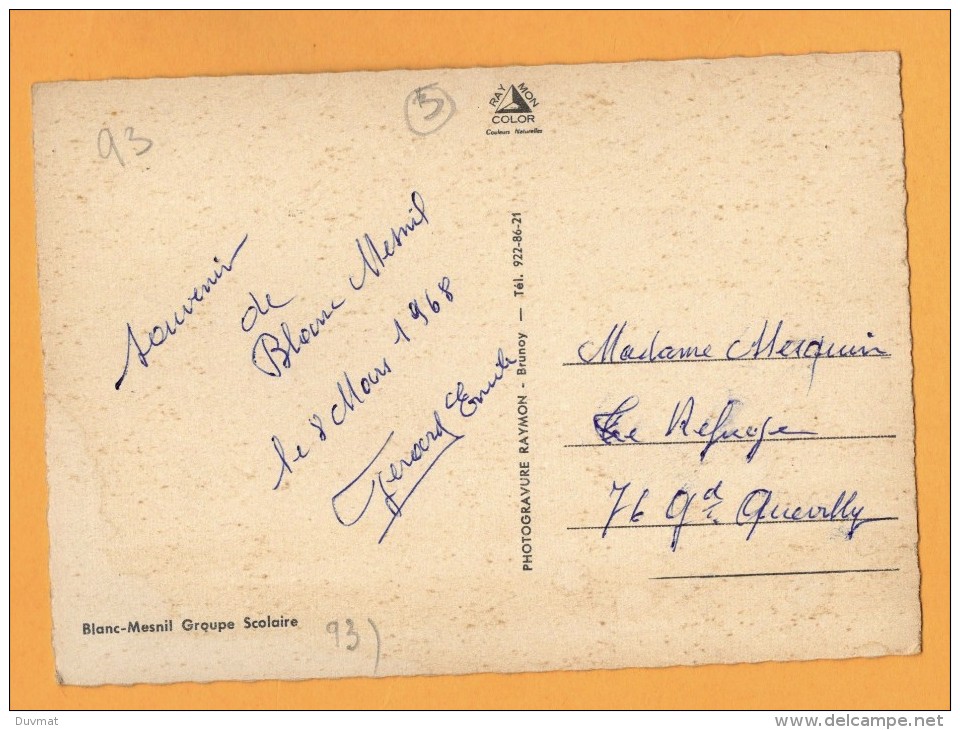 93
5
RAYMON
COLOR
Couleurs Naturelles
Souvenir
de
Blanc Mesnil
le 8 Mars 1968
Gérard
PHOTOGRAVURE RAYMON - Brunoy — Tél. 922-86-21
Madame Mesquin
Le Refuge
76 Gd Quevilly
Blanc-Mesnil Groupe Scolaire
93)
Duvmat
delcampe.net